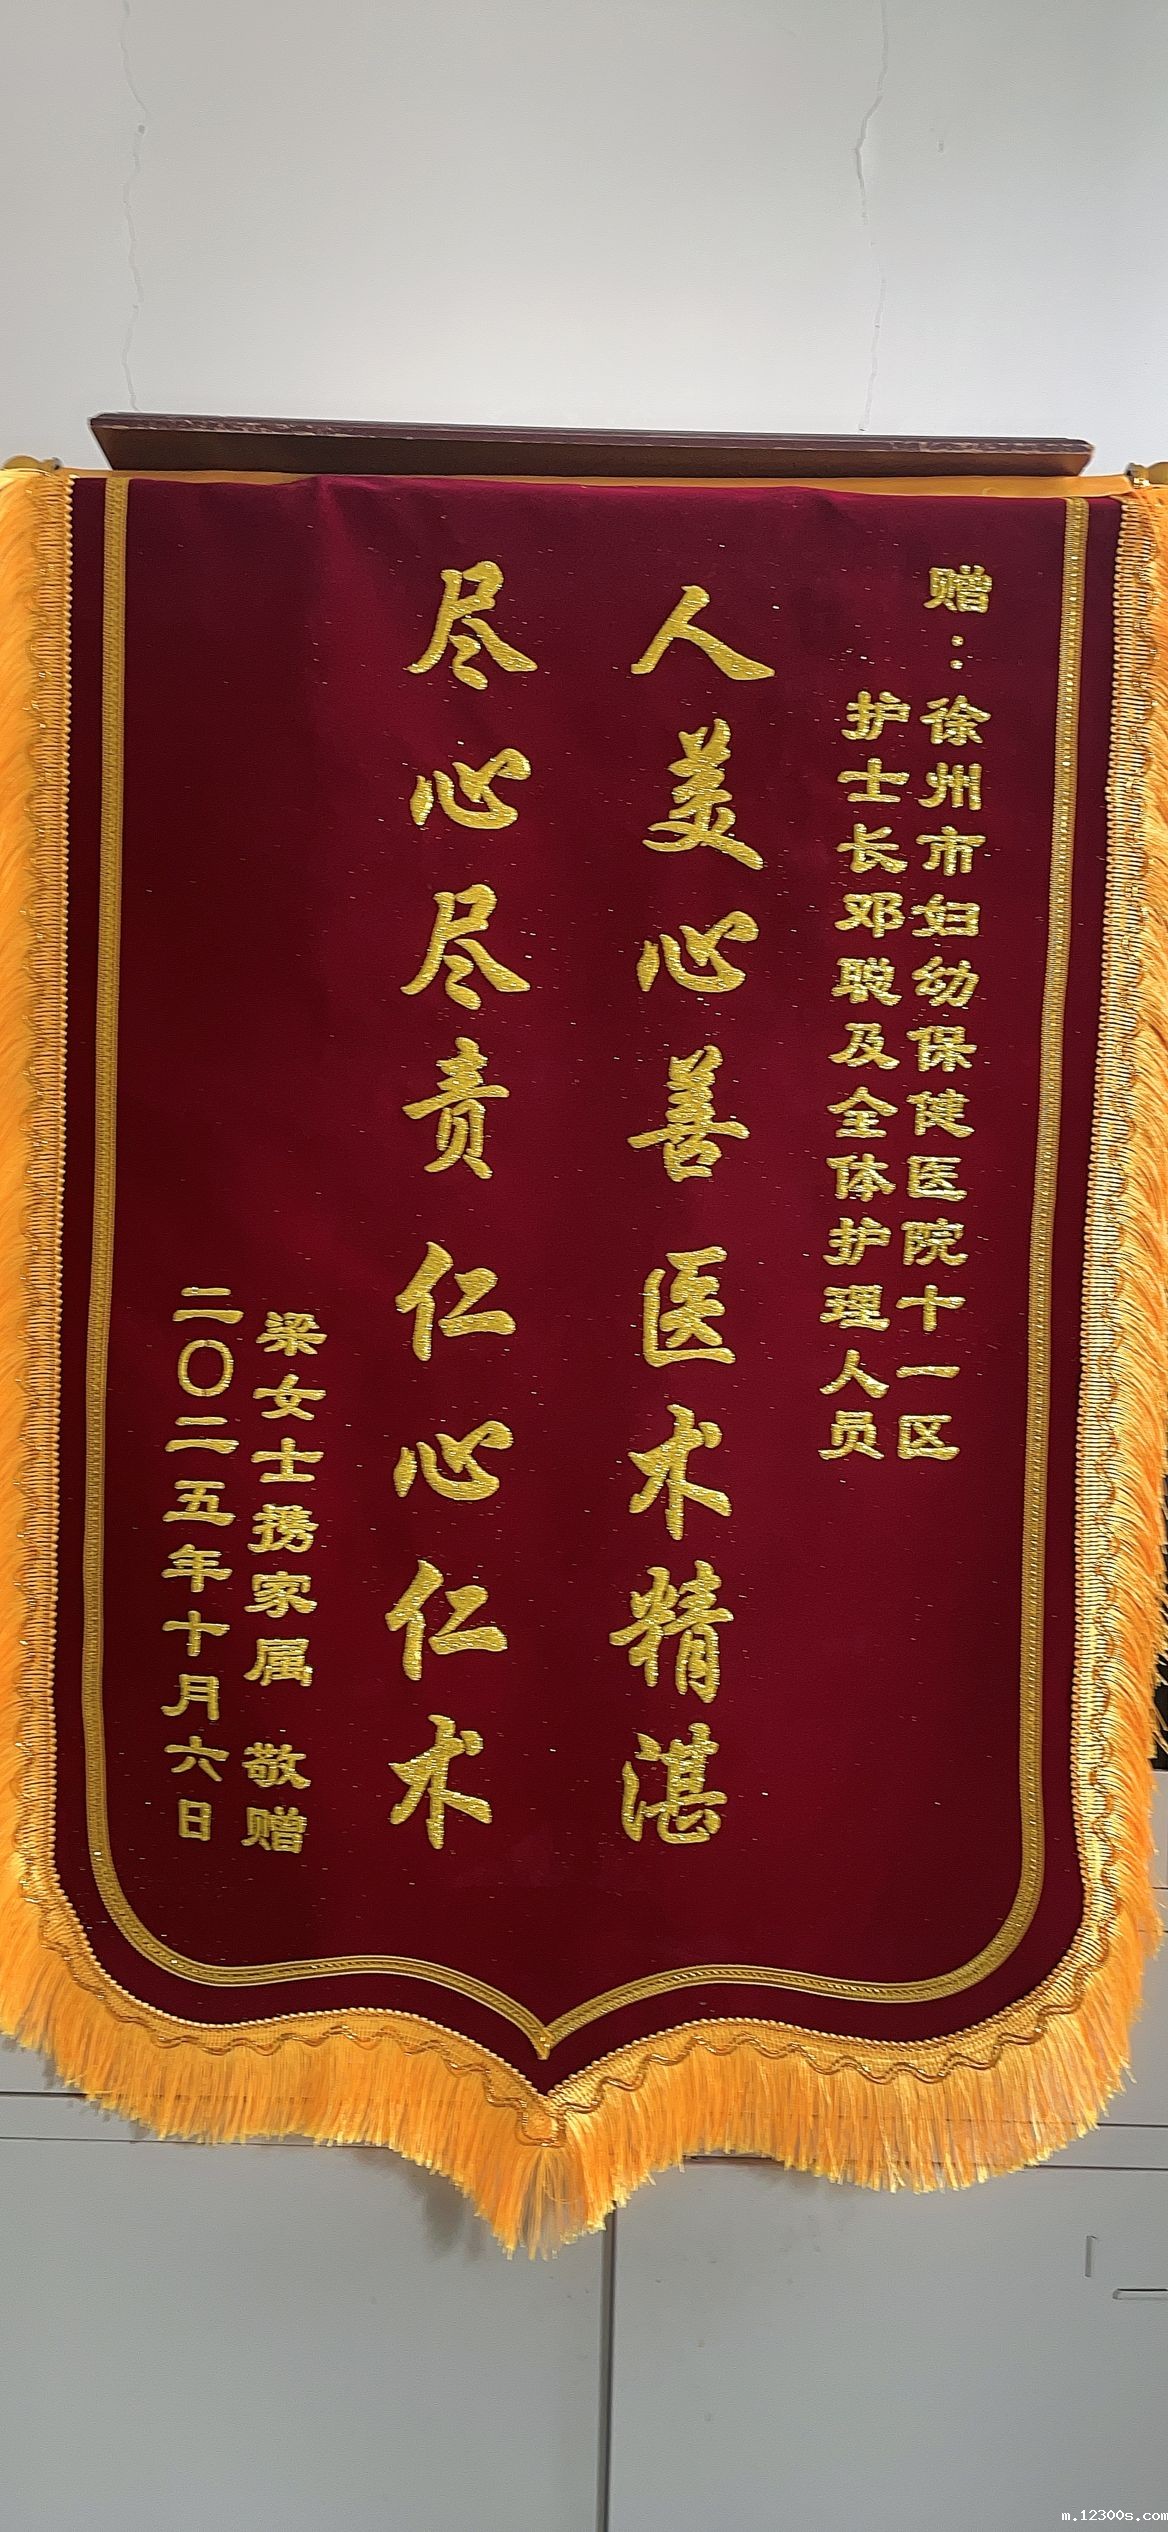 赠：徐州市妇幼保健医院十一区
护士长邓聪及全体护理人员
人美心善 医术精湛
尽心尽责 仁心仁术
梁女士携家属 敬赠
二〇二五年十月六日
m.12300s.com